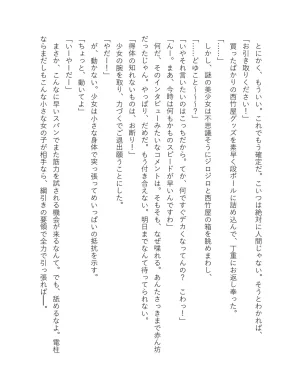 とにかく、もういい。これでもう確定だ。こいつは絶対に人間じゃない。そうとわかれば、
「お引き取りください！」
買ったばかりの西竹屋グッズを素早く段ボールに詰め込んで、丁重にお返し奉った。
「……」
しかし、謎の美少女は不思議そうにジロジロと西竹屋の箱を眺めまわし、
「……どゆこと～～～～？」
「いやそれ言いたいのはこっちだから。てか、何ですぐデカくなってんの？　こわっ！」
「んー。まあ、今時は何もかものスピードが早いんですわ」
何だ、そのインタビューみたいなコメントは。そもそも、なぜ喋れる。あんたさっきまで赤ん坊
だったじゃん。やっぱり、だめだ。もう付き合えない。明日までなんて待ってられない。
「得体の知れないものは、お断り！」
少女の腕を取り、力づくでご退出願うことにした。
が、動かない。少女は小さな身体で突っ張ってめいっぱいの抵抗を示す。
「ちょっと、動いてよ」
「いーやーだー」
まさか、こんなに早いスパンでまた筋力を試される機会が来るなんて。でも、舐めるなよ。電柱
ならまだしもこんな小さな女の子が相手なら、綱引きの要領で全力で引っ張れば――。